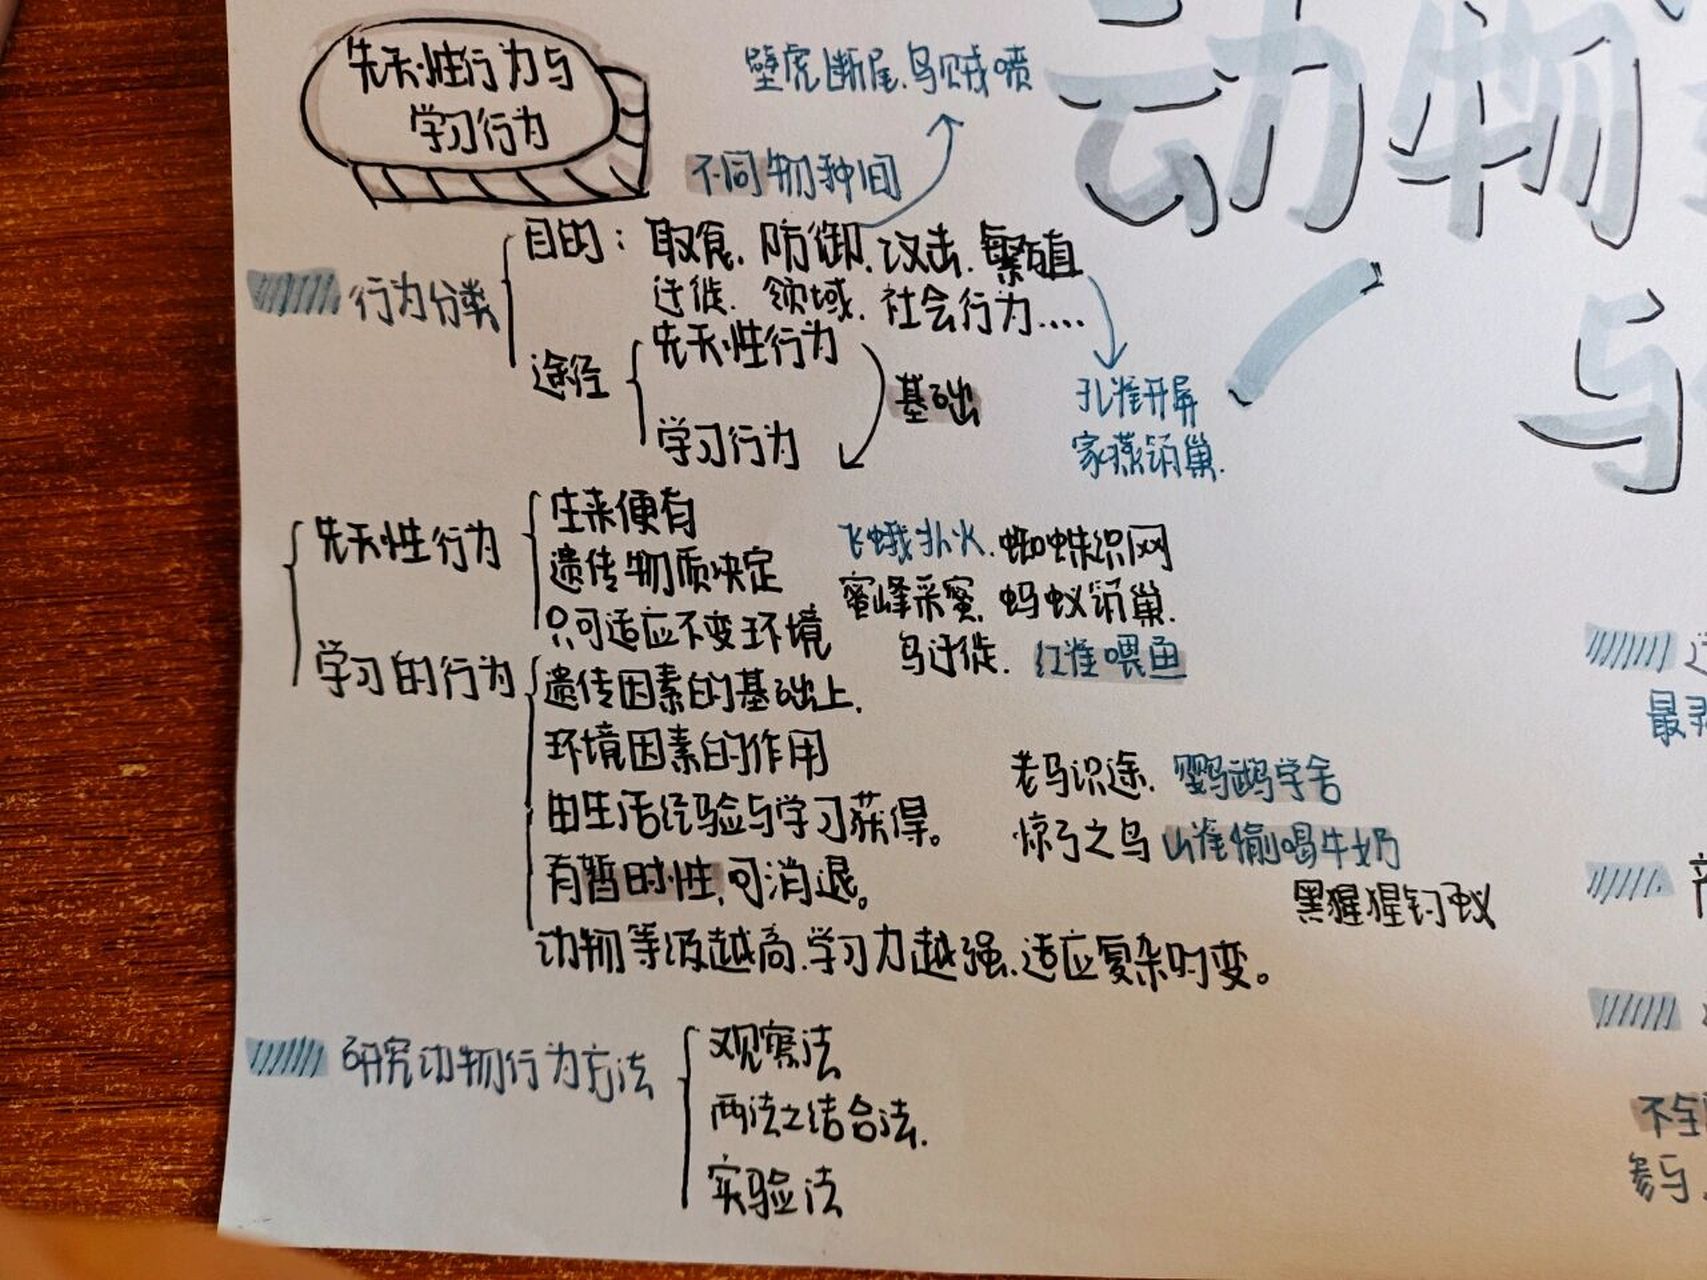 先天性行为与
学习行为
壁虎断尾.乌贼喷
不同物种间
动物
与
行为分类
目的：取食.防御.攻击.繁殖
迁徙.领域.社会行为....
途径
先天性行为
学习行为
基础
孔雀开屏
家燕筑巢.
先天性行为
生来便有
遗传物质决定
只可适应不变环境
飞蛾扑火.蜘蛛织网
蜜蜂采蜜.蚂蚁筑巢.
鸟迁徙.红雀喂鱼
学习的行为
遗传因素的基础上.
环境因素的作用
由生活经验与学习获得。
有暂时性,可消退。
动物等级越高.学习力越强.适应复杂时变。
老马识途.鹦鹉学舌
惊弓之鸟 山雀偷喝牛奶
黑猩猩钓蚁
研究动物行为方法
观察法
两法之结合法.
实验法
最
不全
参与